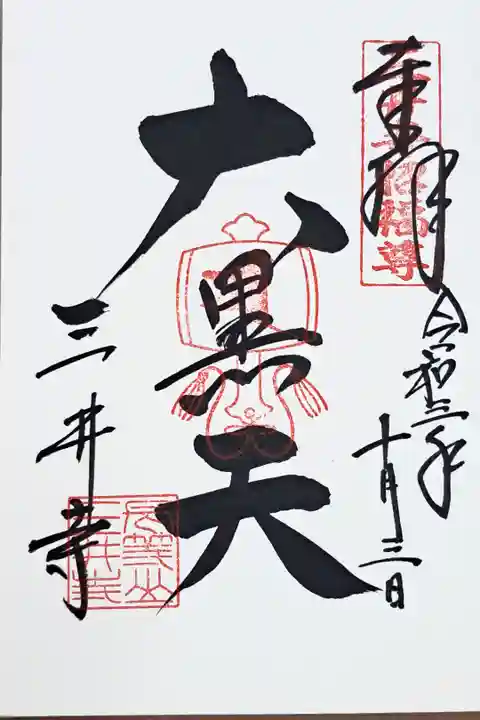 奉拝
令和三年
十月三日
大黒天
三井寺
招福尊
長等山
三井寺